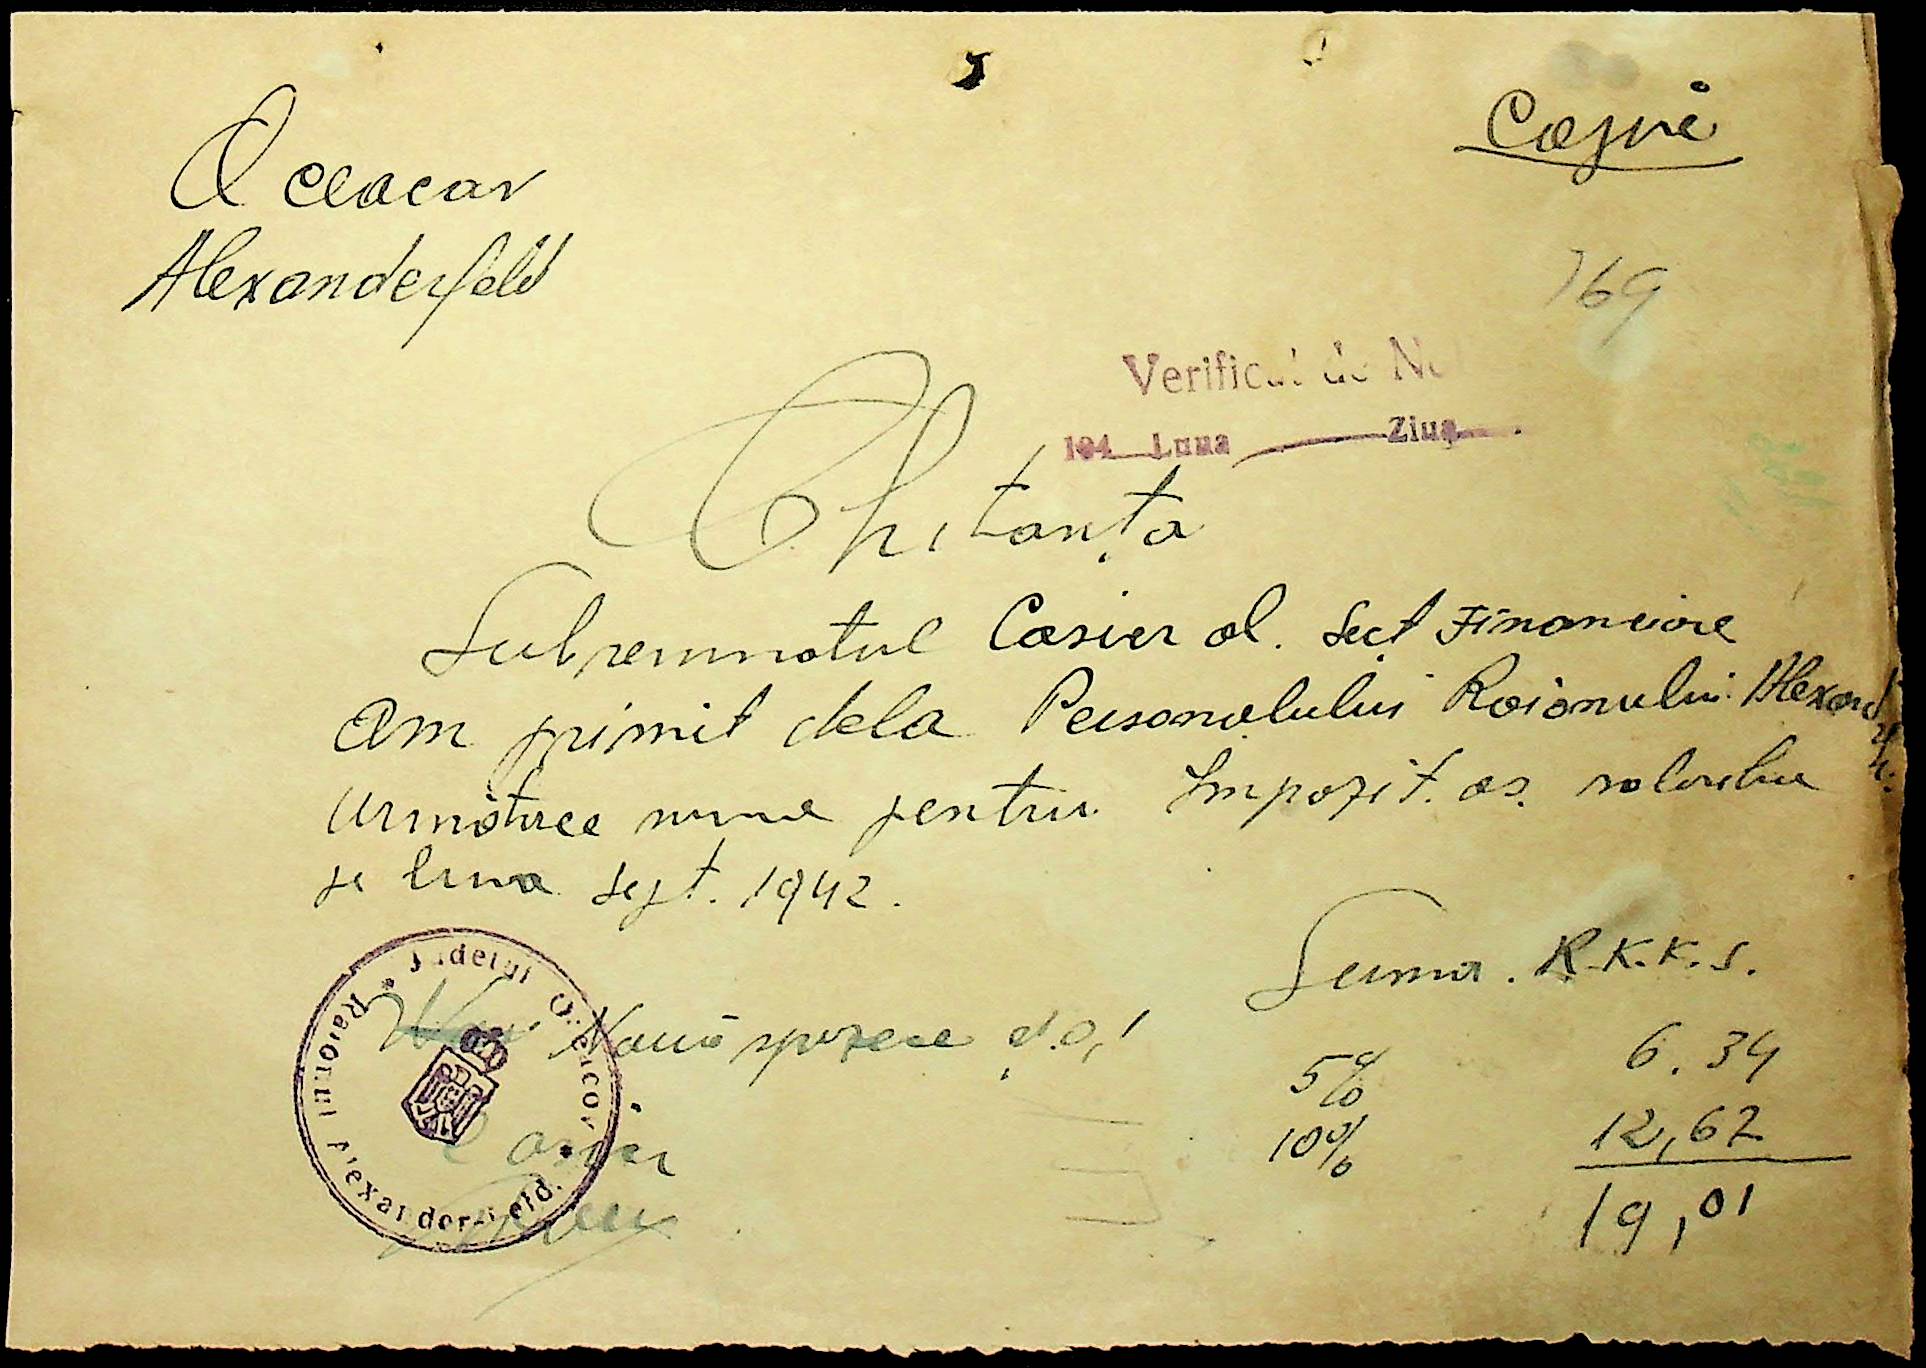 Oceacov
Copie
Alexanderfeld
769
Verificat de No
194 Luna Ziua
Chitanța
Subsemnatul Casier al. Sect Financiare
Am primit dela Personalului Raionului Alexand
Următoree suma pentru Impozit. as. salariilor
pe luna sept. 1942.
Suma. R.K.K.S.
Nouăsprezece și 01
5% 6.34
10% 12,67
19,01
Casier
Județul Oceacov * Raionul Alexanderfeld.